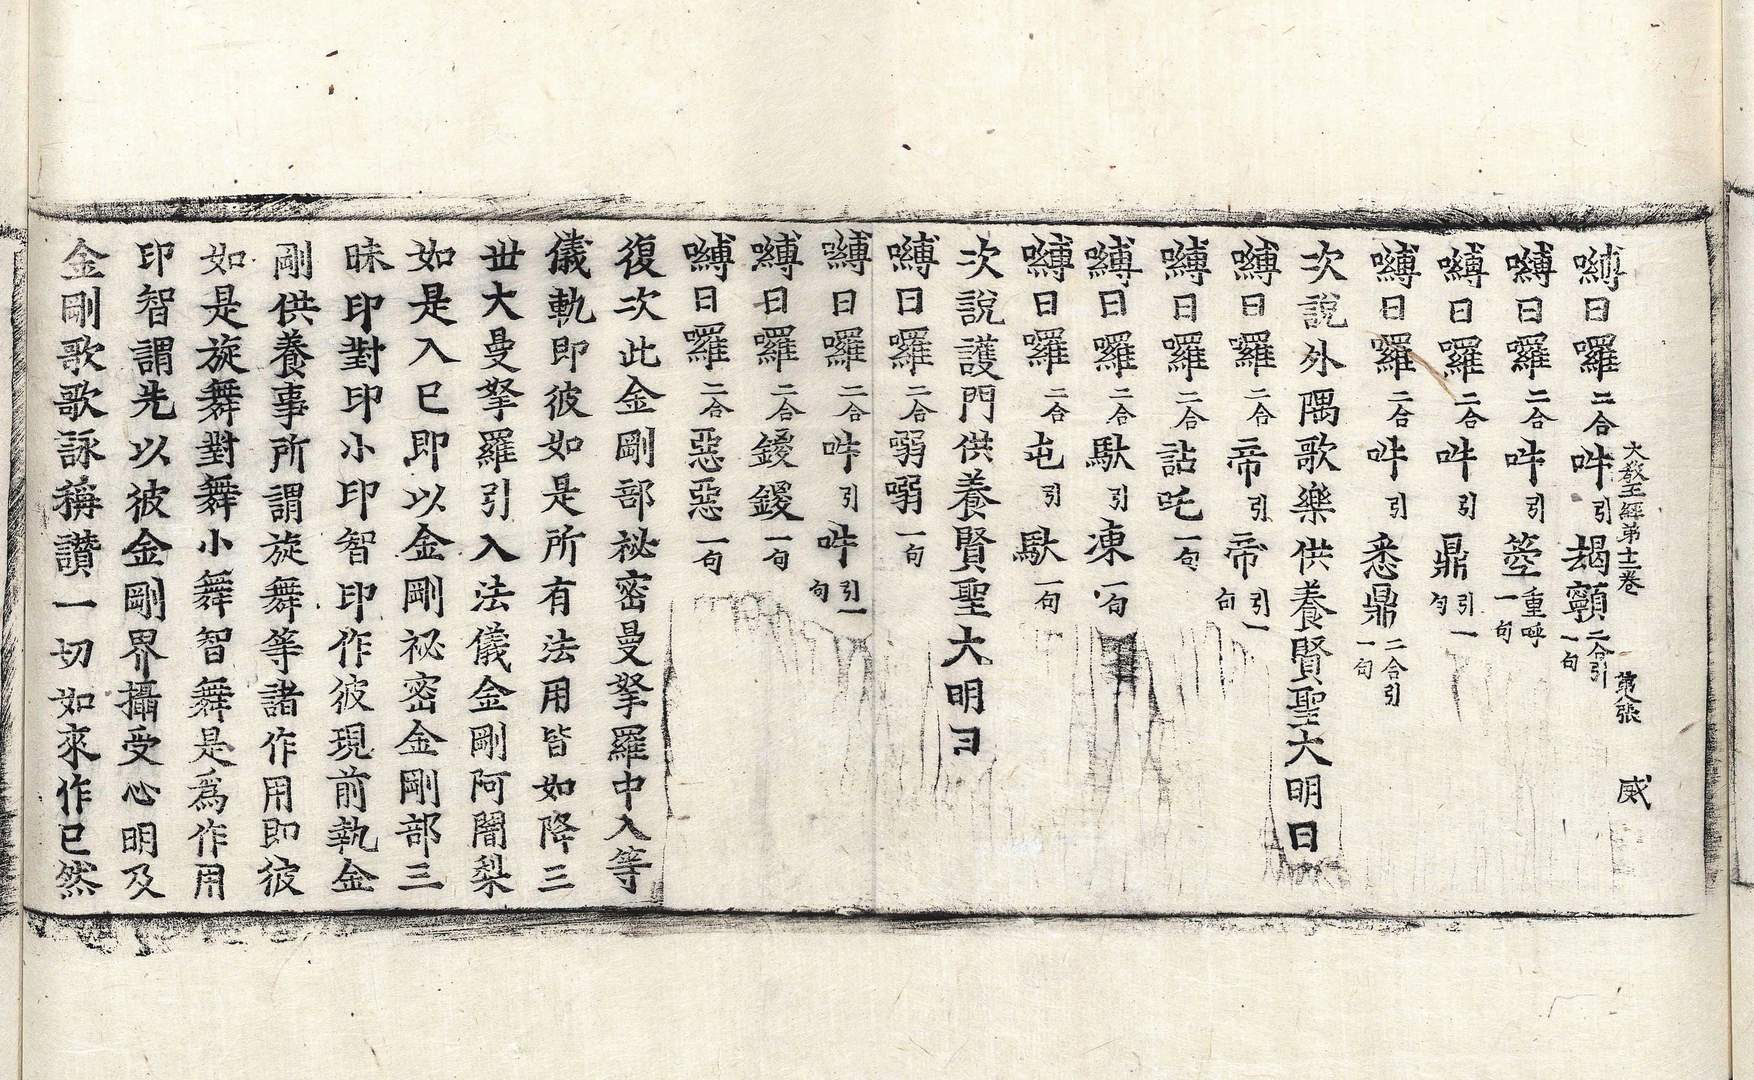 大教王經第十二卷　第八張　威
嚩日囉二合吽引朅顐二合引一句
嚩日囉二合吽引箜重呼一句
嚩日囉二合吽引鼎引一句
嚩日囉二合吽引悉鼎二合引一句
次說外隅歌樂供養賢聖大明曰
嚩日囉二合帝引帝引一句
嚩日囉二合詀吒一句
嚩日囉二合馱引凍一句
嚩日囉二合屯引馱一句
次說護門供養賢聖大明曰
嚩日囉二合弱弱一句
嚩日囉二合吽引吽引一句
嚩日囉二合鍐鍐一句
嚩日囉二合惡惡一句
復次此金剛部祕密曼拏羅中入等
儀軌即彼如是所有法用皆如降三
丗大曼拏羅引入法儀金剛阿闍梨
如是入已即以金剛祕密金剛部三
昧印對印小印智印作彼現前執金
剛供養事所謂旋舞等諸作用即彼
如是旋舞對舞小舞智舞是爲作用
印智謂先以彼金剛界攝受心明及
金剛歌歌詠稱讃一切如來作已然